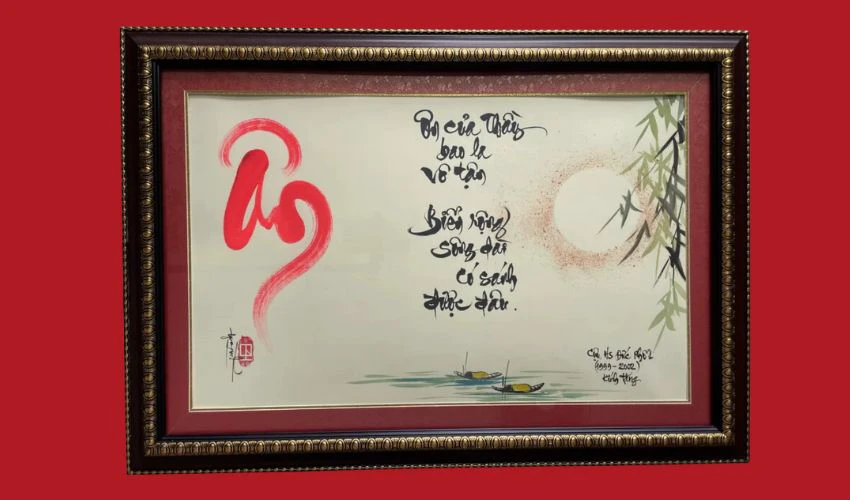 Ân
Ơn của Thầy
bao la
vô tận
Biển rộng
sông dài
có sánh
được đâu.
Cựu HS Đức Phổ 2
(1999 - 2002)
Kính tặng